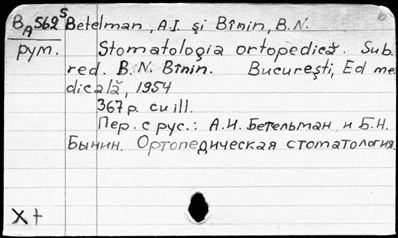 BA562s Betelman, A.I. şi Bînin, B.N.
рум. Stomatologia ortopedică. Sub.
red. B.N. Bînin. Bucureşti, Ed me
dicală, 1954
367 p. cu ill.
Пер. с рус.: А.И. Бетельман и Б.Н.
Бынин. Ортопедическая стоматология.
X+